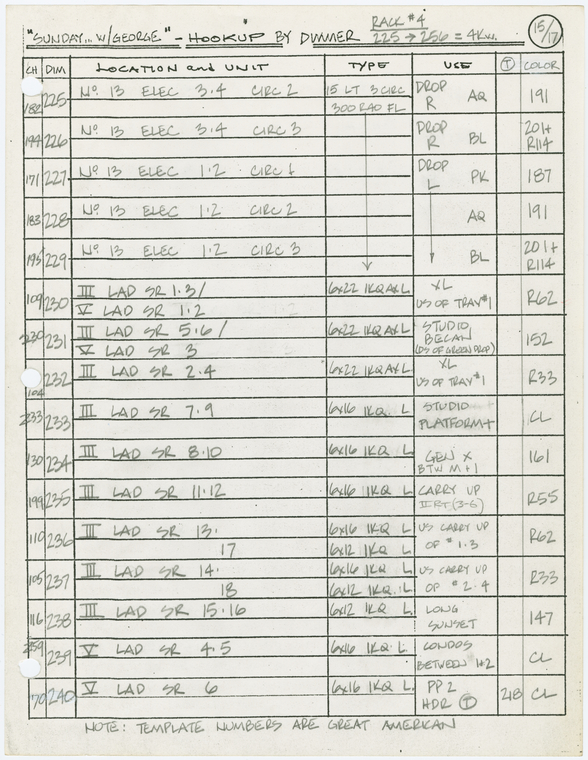 "SUNDAY.. W/GEORGE" - HOOKUP BY DIMMER RACK #4 225 → 256 = 4KW. 15/17
CH DIM LOCATION and UNIT TYPE USE T COLOR
182 225 Nº 13 ELEC 3·4 CIRC 2 15 LT 3 CIRC 300 R40 FL DROP R AQ 191
194 226 Nº 13 ELEC 3·4 CIRC 3 DROP R BL 201+ R114
171 227 Nº 13 ELEC 1·2 CIRC 1 DROP L PK 187
183 228 Nº 13 ELEC 1·2 CIRC 2 AQ 191
195 229 Nº 13 ELEC 1·2 CIRC 3 BL 201+ R114
109 230 III LAD SR 1·3/ 6x22 1KQ AXL XL R62
V LAD SR 1·2 US OF TRAV #1
231 III LAD SR 5·6/ 6x22 1KQ AXL STUDIO 152
V LAD SR 3 BEGAN (DS OF GREEN DROP)
104 232 III LAD SR 2·4 6x22 1KQ AXL XL US OF TRAV #1 R33
233 233 III LAD SR 7·9 6x16 1KQ L STUDIO PLATFORM+ CL
130 234 III LAD SR 8·10 6x16 1KQ L GEN X BTW M+1 161
199 235 III LAD SR 11·12 6x16 1KQ L CARRY UP II FT. (3-6) R55
110 236 III LAD SR 13· 6x16 1KQ L US CARRY UP R62
17 6x12 1KQ L OF #1·3
105 237 III LAD SR 14· 6x16 1KQ L US CARRY UP R33
18 6x12 1KQ L OF #2·4
116 238 III LAD SR 15·16 6x12 1KQ L LONG SUNSET 147
239 V LAD SR 4·5 6x16 1KQ L CONDOS BETWEEN 1+2 CL
70 240 V LAD SR 6 6x16 1KQ L. PP2 HDR T 218 CL
NOTE: TEMPLATE NUMBERS ARE GREAT AMERICAN